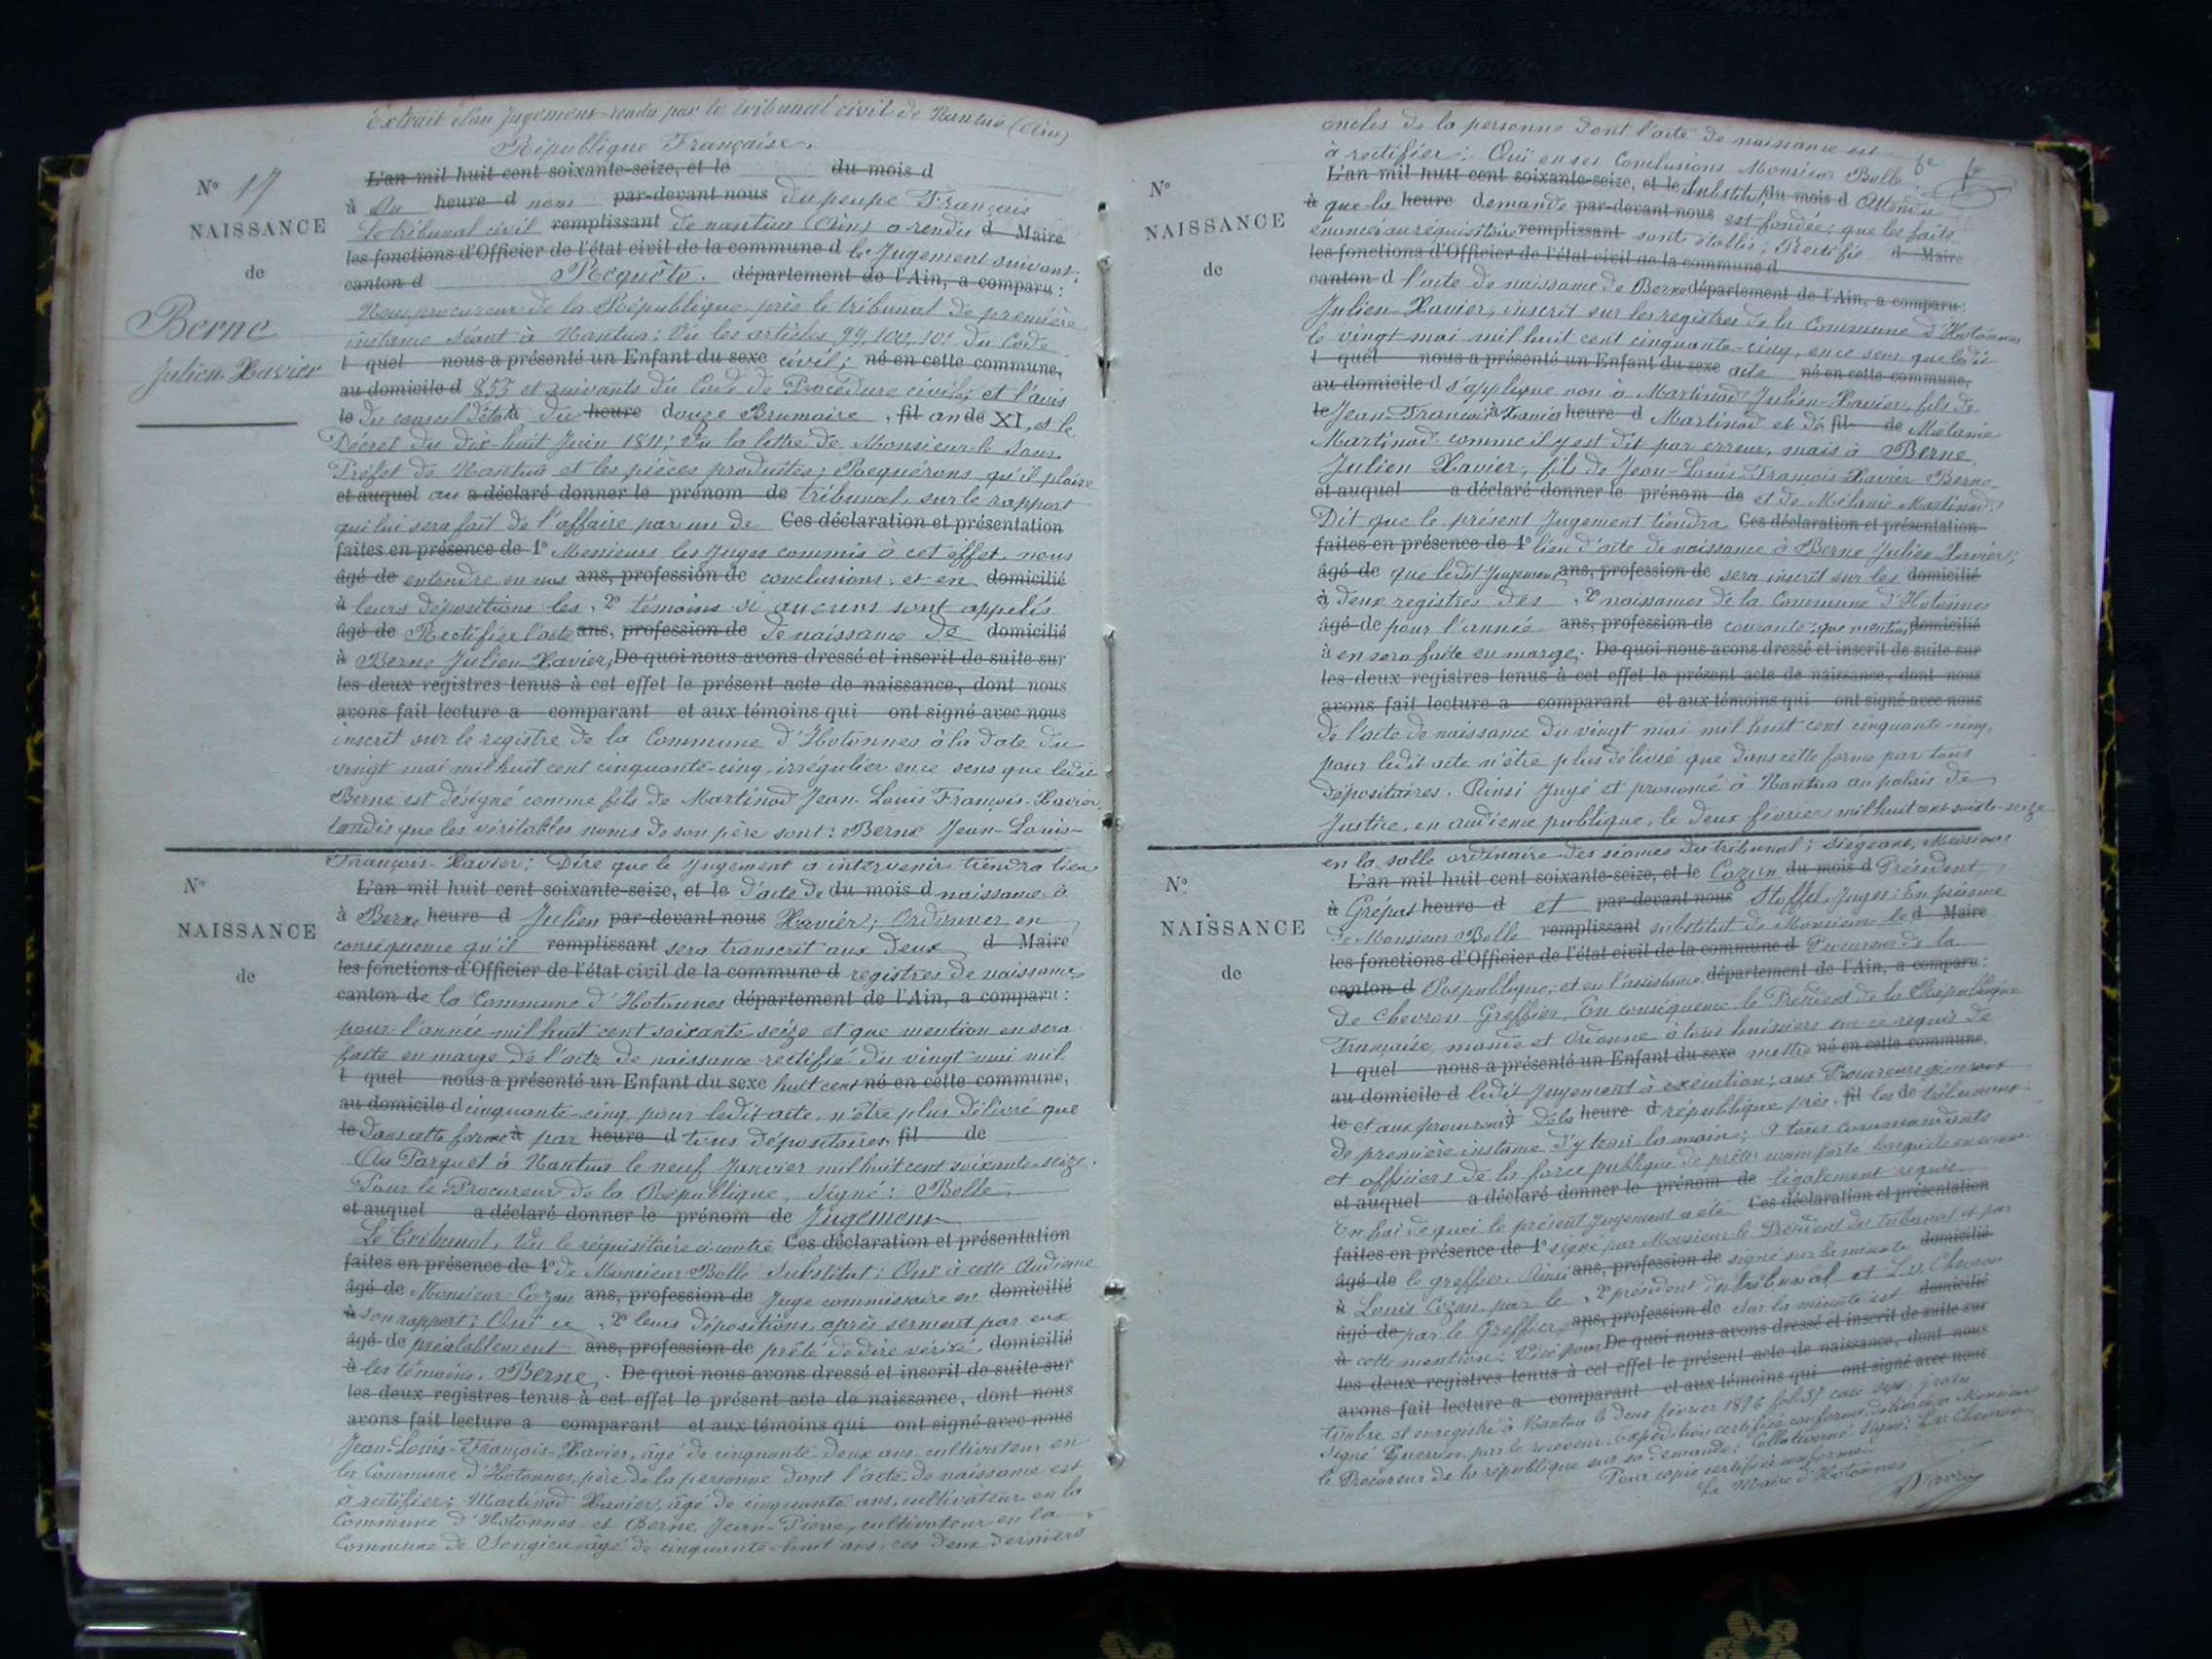 Extrait d'un Jugement rendu par le tribunal civil de Nantua (Ain)
République Française.
N° 17
NAISSANCE
de
Berne
Julien Xavier
L'an mil huit cent soixante-seize, et le du mois d
à Au heure d nom par-devant nous du peupe Français
Le tribunal civil remplissant de nantua (Ain) a rendu d Maire
les fonctions d'Officier de l'état civil de la commune d le Jugement suivant:
canton d Requête. département de l'Ain, a comparu:
Nous, procureur de la République près le tribunal de première
instance séant à Nantua; Vu les articles 99, 100, 101 du Code
l quel nous a présenté un Enfant du sexe civil; né en cette commune,
au domicile d 855 et suivants du Code de Procédure civile; et l'avis
le du conseil d'état à du heure douze Brumaire, fil an de XI, et le
Décret du dix-huit Juin 1811; Vu la lettre de Monsieur le Sous-
Préfet de Nantua et les pièces produites; Requérons qu'il plaise
et auquel au a déclaré donner le prénom de tribunal, sur le rapport
qui lui sera fait de l'affaire par un de Ces déclaration et présentation
faites en présence de 1° Messieurs les Juges commis à cet effet, nous
âgé de entendre en nos ans, profession de conclusions, et en domicilié
à leurs dépositions les, 2° témoins si aucuns sont appelés
âgé de Rectifier l'acte ans, profession de de naissance de domicilié
à Berne Julien Xavier, De quoi nous avons dressé et inscrit de suite sur
les deux registres tenus à cet effet le présent acte de naissance, dont nous
avons fait lecture a comparant et aux témoins qui ont signé avec nous
inscrit sur le registre de la Commune d'Hotonnes à la date du
vingt mai mil huit cent cinquante-cinq, irrégulier en ce sens que ledit
Berne est désigné comme fils de Martinod Jean-Louis François-Xavier,
tandis que les véritables noms de son père sont: Berne Jean-Louis-
François-Xavier; Dire que le Jugement a intervenir tiendra lieu
N°
NAISSANCE
de
L'an mil huit cent soixante-seize, et le d'acte de du mois d naissance à
à Berne heure d Julien par-devant nous Xavier; Ordonner en
conséquence qu'il remplissant sera transcrit aux deux d Maire
les fonctions d'Officier de l'état civil de la commune d registres de naissance
canton de la Commune d'Hotonnes département de l'Ain, a comparu:
pour l'année mil huit cent soixante seize et que mention en sera
faite en marge de l'acte de naissance rectifié du vingt mai mil
l quel nous a présenté un Enfant du sexe huit cent né en cette commune,
au domicile d cinquante-cinq, pour ledit acte, n'être plus délivré que
le dans cette forme à par heure d tous dépositaires fil de
Au Parquet à Nantua le neuf Janvier mil huit cent soixante-seize.
Pour le Procureur de la République, Signé: Bolle
et auquel a déclaré donner le prénom de Jugement
Le Tribunal, Vu le réquisitoire ci-contre Ces déclaration et présentation
faites en présence de 1° de Monsieur Bolle Substitut; Ouï à cette Audience
âgé de Monsieur Cozon ans, profession de Juge commissaire en domicilié
à son rapport; Ouï en, 2° leurs dépositions, après serment par eux
âgé de préalablement ans, profession de prêté de dire vérité, domicilié
à les témoins. Berne, De quoi nous avons dressé et inscrit de suite sur
les deux registres tenus à cet effet le présent acte de naissance, dont nous
avons fait lecture a comparant et aux témoins qui ont signé avec nous
Jean-Louis-François-Xavier, âgé de cinquante-deux ans cultivateur en
la Commune d'Hotonnes, père de la personne dont l'acte de naissance est
à rectifier; Martinod Xavier, âgé de cinquante ans, cultivateur en la
Commune d'Hotonnes et Berne Jean-Pierre, cultivateur en la
Commune de Songieu âgé de cinquante-huit ans, ces deux derniers
oncles de la personne dont l'acte de naissance est
à rectifier; Ouï en ses Conclusions Monsieur Bolle
N°
NAISSANCE
de
L'an mil huit cent soixante-seize, et le Substitut; du mois d Attendu
à que la heure demande par-devant nous est fondée; que les faits
énoncés au réquisitoire remplissant sont établis; Rectifie d Maire
les fonctions d'Officier de l'état civil de la commune d
canton d l'acte de naissance de Berne département de l'Ain, a comparu:
Julien-Xavier, inscrit sur les registres de la Commune d'Hotonnes
le vingt mai mil huit cent cinquante-cinq, en ce sens que ledit
l quel nous a présenté un Enfant du sexe acte né en cette commune,
au domicile d s'applique non à Martinod Julien-Xavier, fils de
le Jean-François à Xavier heure d Martinod et de fil de Mélanie
Martinod comme il y est dit par erreur, mais à Berne
Julien Xavier, fils de Jean-Louis-François-Xavier Berne
et auquel a déclaré donner le prénom de et de Mélanie Martinod;
Dit que le présent Jugement tiendra Ces déclaration et présentation
faites en présence de 1° lieu d'acte de naissance à Berne Julien Xavier;
âgé de que ledit Jugement ans, profession de sera inscrit sur les domicilié
à deux registres des, 2° naissances de la Commune d'Hotonnes
âgé de pour l'année ans, profession de courante; que mention domicilié
à en sera faite en marge, De quoi nous avons dressé et inscrit de suite sur
les deux registres tenus à cet effet le présent acte de naissance, dont nous
avons fait lecture a comparant et aux témoins qui ont signé avec nous
de l'acte de naissance du vingt mai mil huit cent cinquante-cinq,
pour ledit acte n'être plus délivré que dans cette forme par tous
dépositaires. Ainsi Jugé et prononcé à Nantua au palais de
Justice, en audience publique, le deux février mil huit cent soixante-seize
en la salle ordinaire des séances du tribunal; Siégeant, Messieurs
N°
NAISSANCE
de
L'an mil huit cent soixante-seize, et le Cozon du mois d Président
à Grépat heure d et par-devant nous Stoffel, Juges; En présence
de Monsieur Bolle remplissant substitut de Monsieur le d Maire
les fonctions d'Officier de l'état civil de la commune d Procureur de la
canton d République; et en l'assistance département de l'Ain, a comparu:
de Chevron Greffier. En conséquence le Président de la République
Française, mande et Ordonne à tous huissiers sur ce requis de
l quel nous a présenté un Enfant du sexe mettre né en cette commune,
au domicile d ledit Jugement à exécution; aux Procureurs généraux
le et aux procureurs à de la heure d république près, fil les de tribunaux
de première instance d'y tenir la main; à tous commandants
et officiers de la force publique de prêter main forte lorsqu'ils en seront
et auquel a déclaré donner le prénom de légalement requis.
En foi de quoi le présent Jugement a été Ces déclaration et présentation
faites en présence de 1° signé par Monsieur le Président du tribunal et par
âgé de le greffier. Ainsi ans, profession de signé sur la minute domicilié
à Louis Cozon par le, 2° président du tribunal et Ls. Chevron
âgé de par le Greffier, ans, profession de Sur la minute est domicilié
à cette mention: Visé pour De quoi nous avons dressé et inscrit de suite sur
les deux registres tenus à cet effet le présent acte de naissance, dont nous
avons fait lecture a comparant et aux témoins qui ont signé avec nous
timbre et enregistré à Nantua le deux février 1876 fol. 37 case sept. Gratis
Signé Guerrier, par le receveur. Expédition certifiée conforme délivrée à Monsieur
le Procureur de la république sur sa demande: Collationné. Signé: Ls. Chevron
Pour copie certifiée conforme:
Le Maire d'Hotonnes